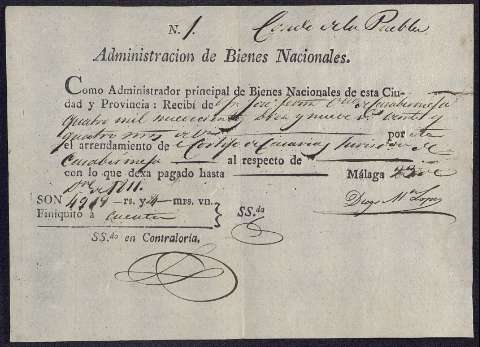 N. 1. Conde de la Puebla
Administracion de Bienes Nacionales.
Como Administrador principal de Bienes Nacionales de esta Ciu-
dad y Provincia: Recibí de
quatro mil nuevecientos diez y nueve
quatro mrs de vn por
el arrendamiento de Cortijo de
Casabermeja al respecto de
con lo que dexa pagado hasta Málaga
de 1811.
SON 4919 rs. y 4 mrs. vn.
Finiquito á cuenta SS.do
Diego Ma Lopez
SS.do en Contraloría.